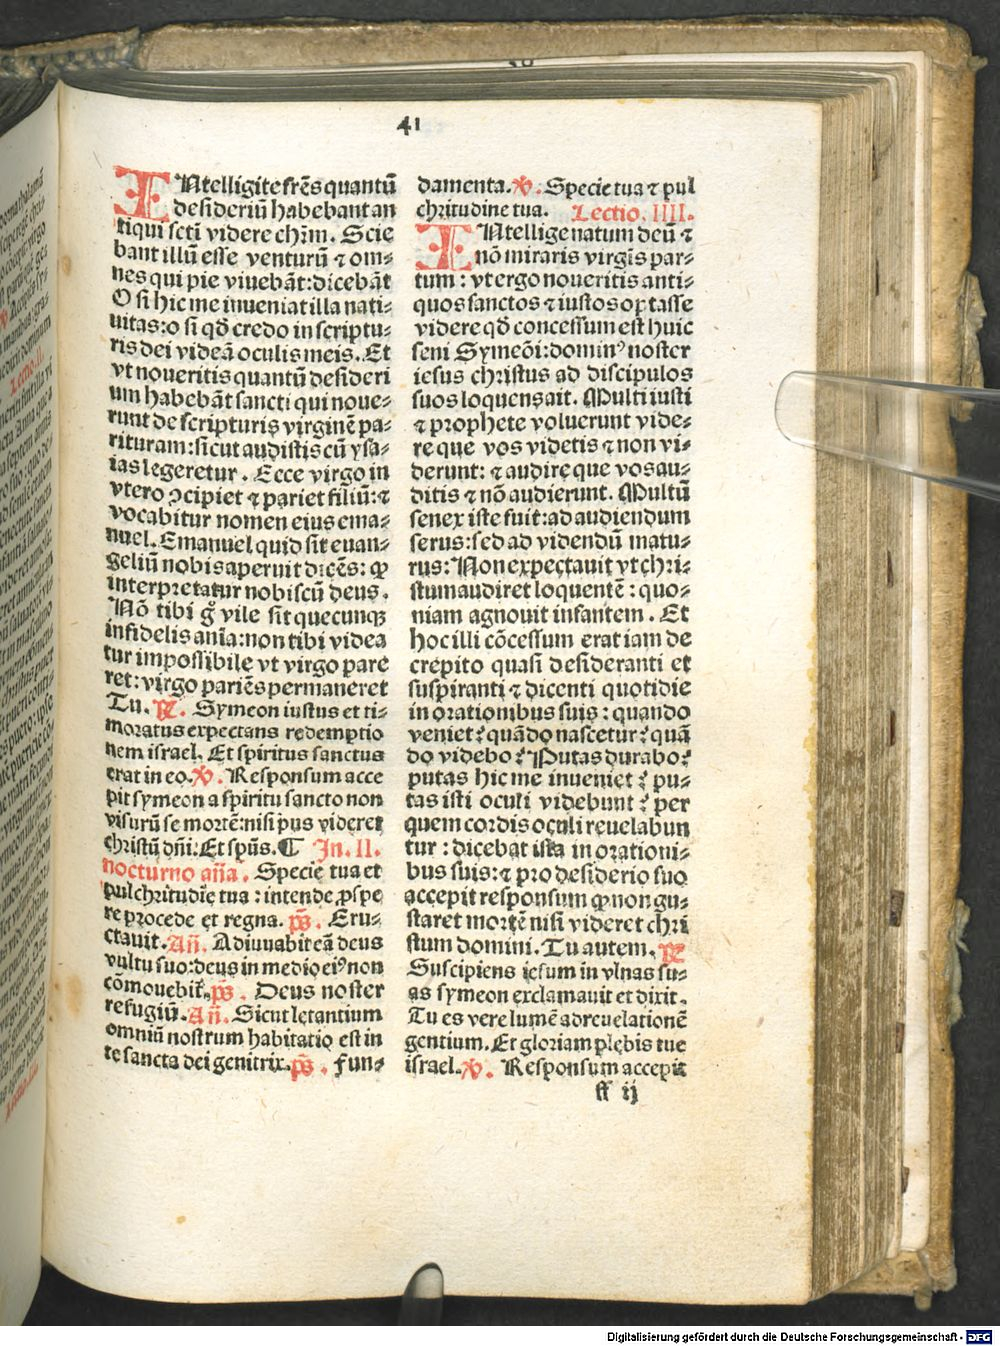 41
INtelligite frēs quantū
desideriū habebant an
tiqui scti videre chrm. Scie
bant illū esse venturū ⁊ om⸗
nes qui pie viuebāt: dicebāt
O si hic me inueniat illa nati⸗
uitas: o si qđ credo in scriptu⸗
ris dei videā oculis meis. Et
vt noueritis quantū desideri
um habebāt sancti qui noue⸗
runt de scripturis virginē pa⸗
rituram: sicut audistis cū ysa⸗
ias legeretur. Ecce virgo in
vtero ↄcipiet ⁊ pariet filiū: ⁊
vocabitur nomen eius ema⸗
nuel. Emanuel quid sit euan⸗
geliū nobis aperuit dicēs: ꝙ
interpretatur nobiscū deus.
Nō tibi gͦ vile sit quecunqꝫ
infidelis aīa: non tibi videa
tur impossibile vt virgo pare
ret: virgo pariēs permaneret
Tu. ℞. Symeon iustus et ti⸗
moratus expectans redemptio
nem israel. Et spiritus sanctus
erat in eo. ℣. Responsum acce
pit symeon a spiritu sancto non
visurū se mortē: nisi pͥus videret
christū dn̄i: Et spūs. ¶ In. II.
nocturno an̄a. Specie tua et
pulchritudīe tua: intende ꝓspe
re procede et regna. p̄s. Eru⸗
ctauit. An̄. Adiuuabit eā deus
vultu suo: deus in medio eiꝰ non
cōmouebit͛. p̄s. Deus noster
refugiū. An̄. Sicut letantium
omniū nostrum habitatio est in
te sancta dei genitrix. p̄s. Fun⸗
damenta. ℣. Specie tua ⁊ pul
chritudine tua. Lectio. IIII.
INtellige natum deū ⁊
nō miraris virgīs par⸗
tum: vt ergo noueritis anti⸗
quos sanctos ⁊ iustos optasse
videre qđ concessum est huic
seni Symeōi: dominꝰ noster
iesus christus ad discipulos
suos loquens ait. Multi iusti
⁊ prophete voluerunt vide⸗
re que vos videtis ⁊ non vi⸗
derunt: ⁊ audire que vos au⸗
ditis ⁊ nō audierunt. Multū
senex iste fuit: ad audiendum
serus: sed ad videndū matu⸗
rus: Non expectauit vt chri⸗
stum audiret loquentē: quo⸗
niam agnouit infantem. Et
hoc illi cōcessum erat iam de
crepito quasi desideranti et
suspiranti ⁊ dicenti quotidie
in orationibus suis: quando
veniet? quādo nascetur? quā
do videbo? Putas durabo?
putas hic me inueniet? pu⸗
tas isti oculi videbunt? per
quem cordis oculi reuelabun
tur: dicebat ista in orationi⸗
bus suis: ⁊ pro desiderio suo
accepit responsum ꝙ non gu⸗
staret mortē nisi videret chri
stum domini. Tu autem. ℞
Suscipiens iesum in vlnas su⸗
as symeon exclamauit et dixit.
Tu es vere lumē ad reuelationē
gentium. Et gloriam plebis tue
israel. ℣. Responsum accepit
ff ij
Digitalisierung gefördert durch die Deutsche Forschungsgemeinschaft - DFG